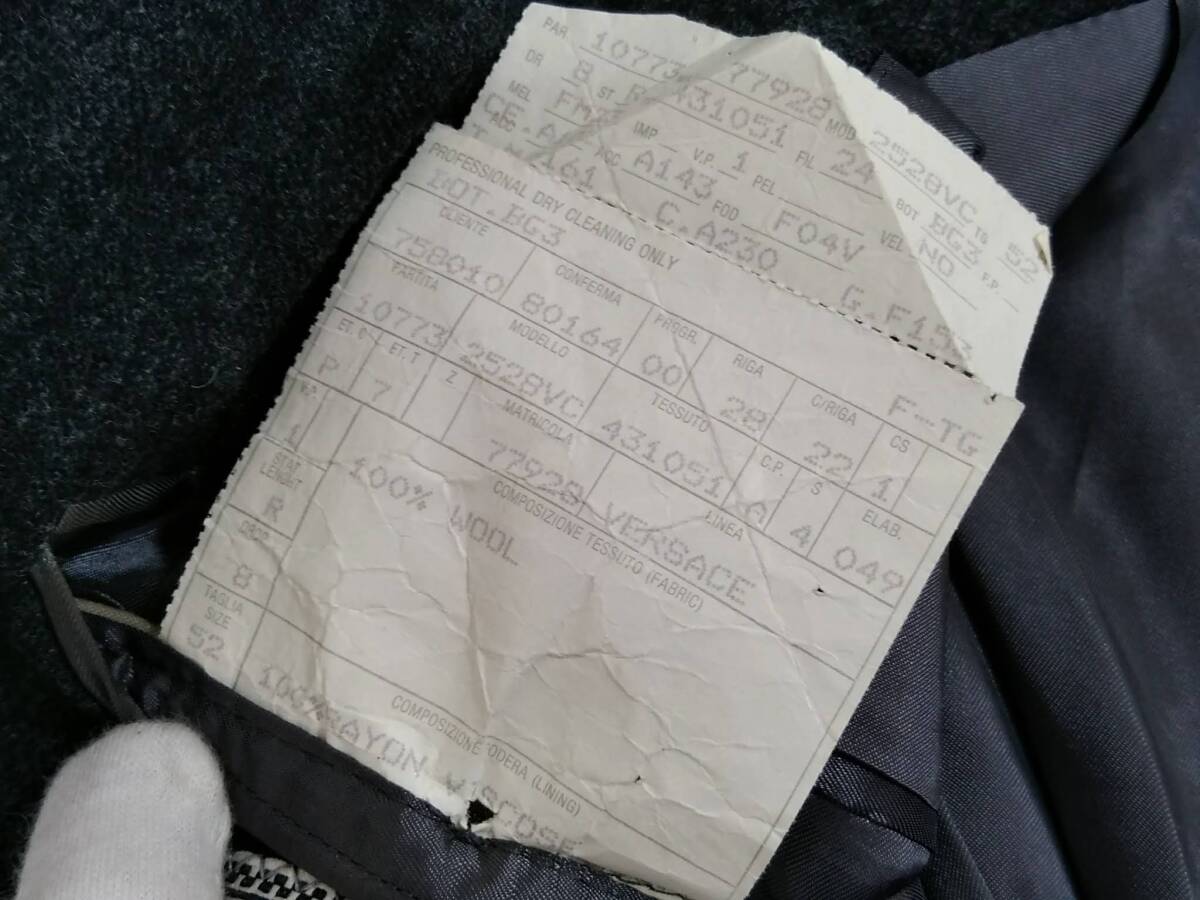 PAR 10773 77928 MOD 2528VC TG 52
DR 8 ST R 431051 FIL 24 BOT BG3 F.P.
MEL IMP V.P. 1 PEL VEL NO
ACC ACC A143 FOD F04V
C.A230 G.F153
PROFESSIONAL DRY CLEANING ONLY
BOT.BG3 F--TG
CLIENTE CONFERMA PROGR. RIGA C/RIGA CS
758010 80164 00 28 22 1
PARTITA MODELLO TESSUTO C.P. S ELAB.
10773 2528VC 431051 A 4 049
ET. T Z MATRICOLA LINEA
P 7 77928 VERSACE
V.P. COMPOSIZIONE TESSUTO (FABRIC)
1 100% WOOL
STAT
LENGHT
R
DROP
8
TAGLIA
SIZE
52
COMPOSIZIONE FODERA (LINING)
100%RAYON VISCOSE